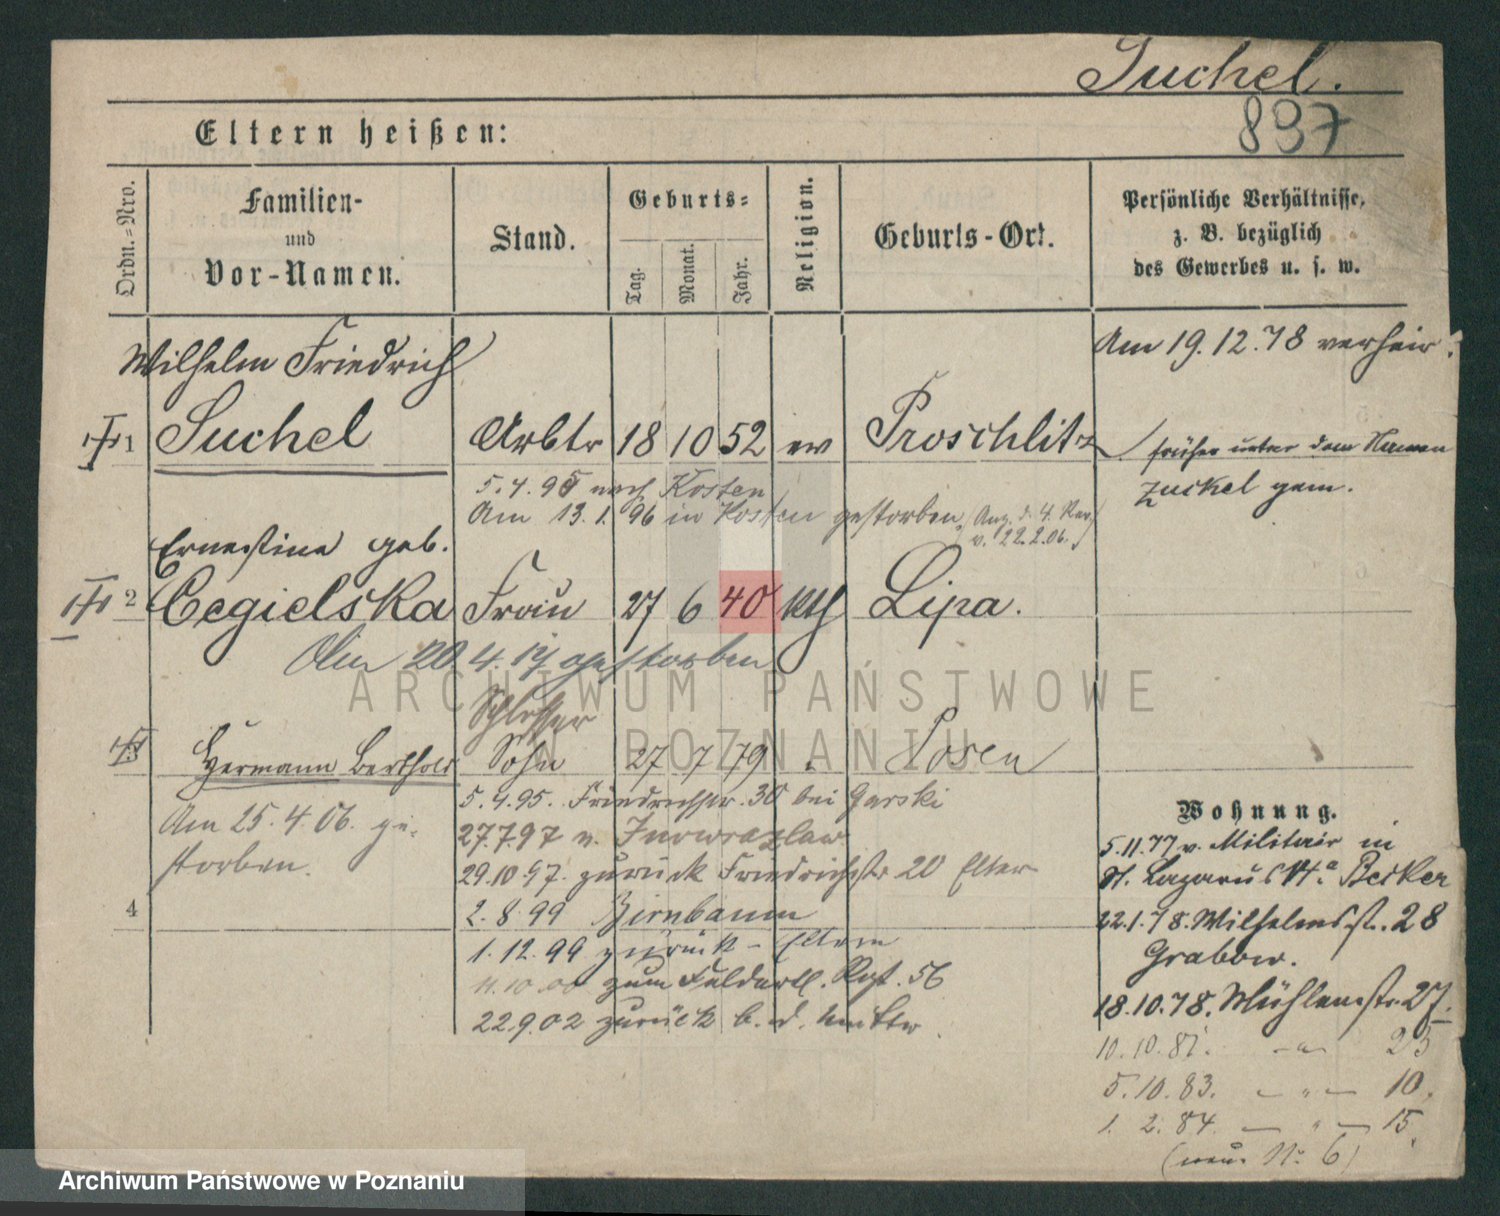 Suchel.
897
Eltern heißen:
Ordn.=Nro.
Familien-
und
Vor-Namen.
Stand.
Geburts=
Tag.
Monat.
Jahr.
Religion.
Geburts-Ort.
Persönliche Verhältnisse,
z. B. bezüglich
des Gewerbes u. s. w.
Wilhelm Friedrich
Am 19.12.78 verheir.
1 Suchel Arbtr 18 10 52 ev Proschlitz
früher unter dem Namen
Zuckel gem.
5.4.95 nach Kosten
Am 13.1.96 in Kosten gestorben (Anz. d. 4. Rev.
v. 22.2.06.)
Ernestine geb.
2 Cegielska Frau 27 6 40 kth Lipa.
Am 20.4.17 gestorben
Schlosser
3 Hermann Berthold Sohn 27 7 79 Posen
Am 25.4.06. ge-
storben.
5.4.95. Friedrichstr. 30 bei Garski
27.7.97 n. Inowrazlaw
29.10.97. zurück Friedrichstr 20 Elter
2.8.99 Birnbaum
4
1.12.99 zurück - Eltern
11.10.00 zum Feldartl. Rgt. 56
22.9.02 zurück b. d. Mutter
Wohnung.
5.11.77 v. Militair in
St. Lazarus Becker
22.1.78. Wilhelmsst. 28
Grabow.
18.10.78. Mühlenstr. 27.
10.10.81. -"- 25
5.10.83. -"- 10.
1.2.84. -"- 15.
(neue No 6)
ARCHIWUM PAŃSTWOWE
W POZNANIU
Archiwum Państwowe w Poznaniu